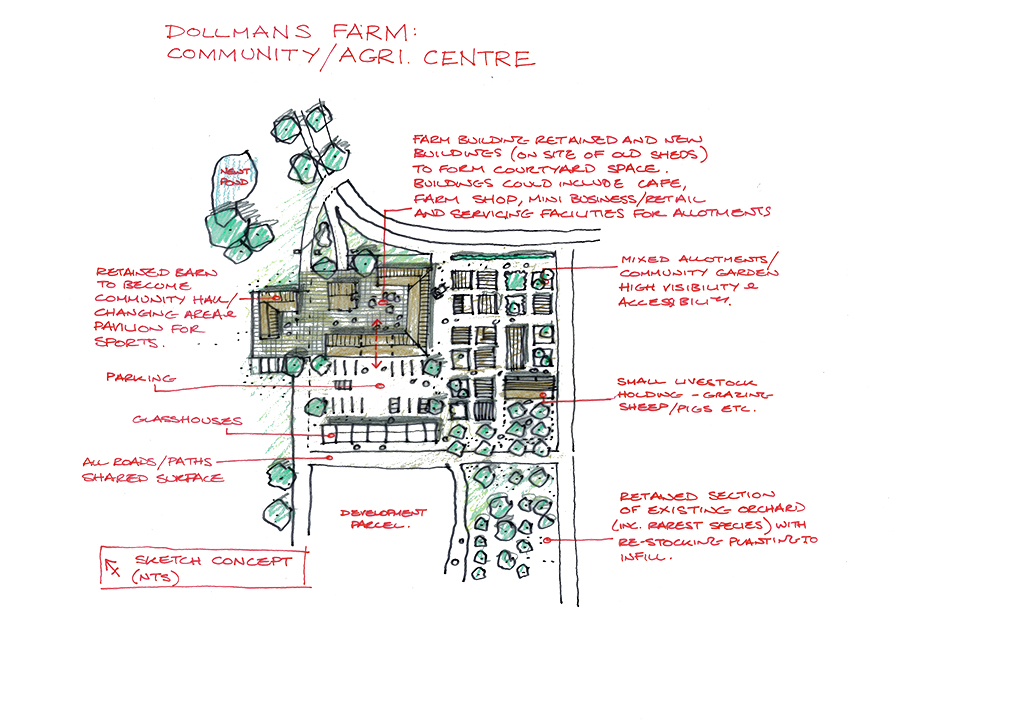 DOLLMANS FARM:
COMMUNITY/AGRI. CENTRE
FARM BUILDING RETAINED AND NEW
BUILDINGS (ON SITE OF OLD SHEDS)
TO FORM COURTYARD SPACE.
BUILDINGS COULD INCLUDE CAFE,
FARM SHOP, MINI BUSINESS/RETAIL
AND SERVICING FACILITIES FOR ALLOTMENTS
NEWT
POND
MIXED ALLOTMENTS/
COMMUNITY GARDEN
HIGH VISIBILITY &
ACCESSIBILITY.
RETAINED BARN
TO BECOME
COMMUNITY HALL/
CHANGING AREA &
PAVILION FOR
SPORTS.
PARKING
SMALL LIVESTOCK
HOLDING - GRAZING
SHEEP/PIGS ETC.
GLASSHOUSES
ALL ROADS/PATHS
SHARED SURFACE
RETAINED SECTION
OF EXISTING ORCHARD
(INC. RAREST SPECIES) WITH
RE-STOCKING PLANTING TO
INFILL.
DEVELOPMENT
PARCEL.
SKETCH CONCEPT
(NTS)